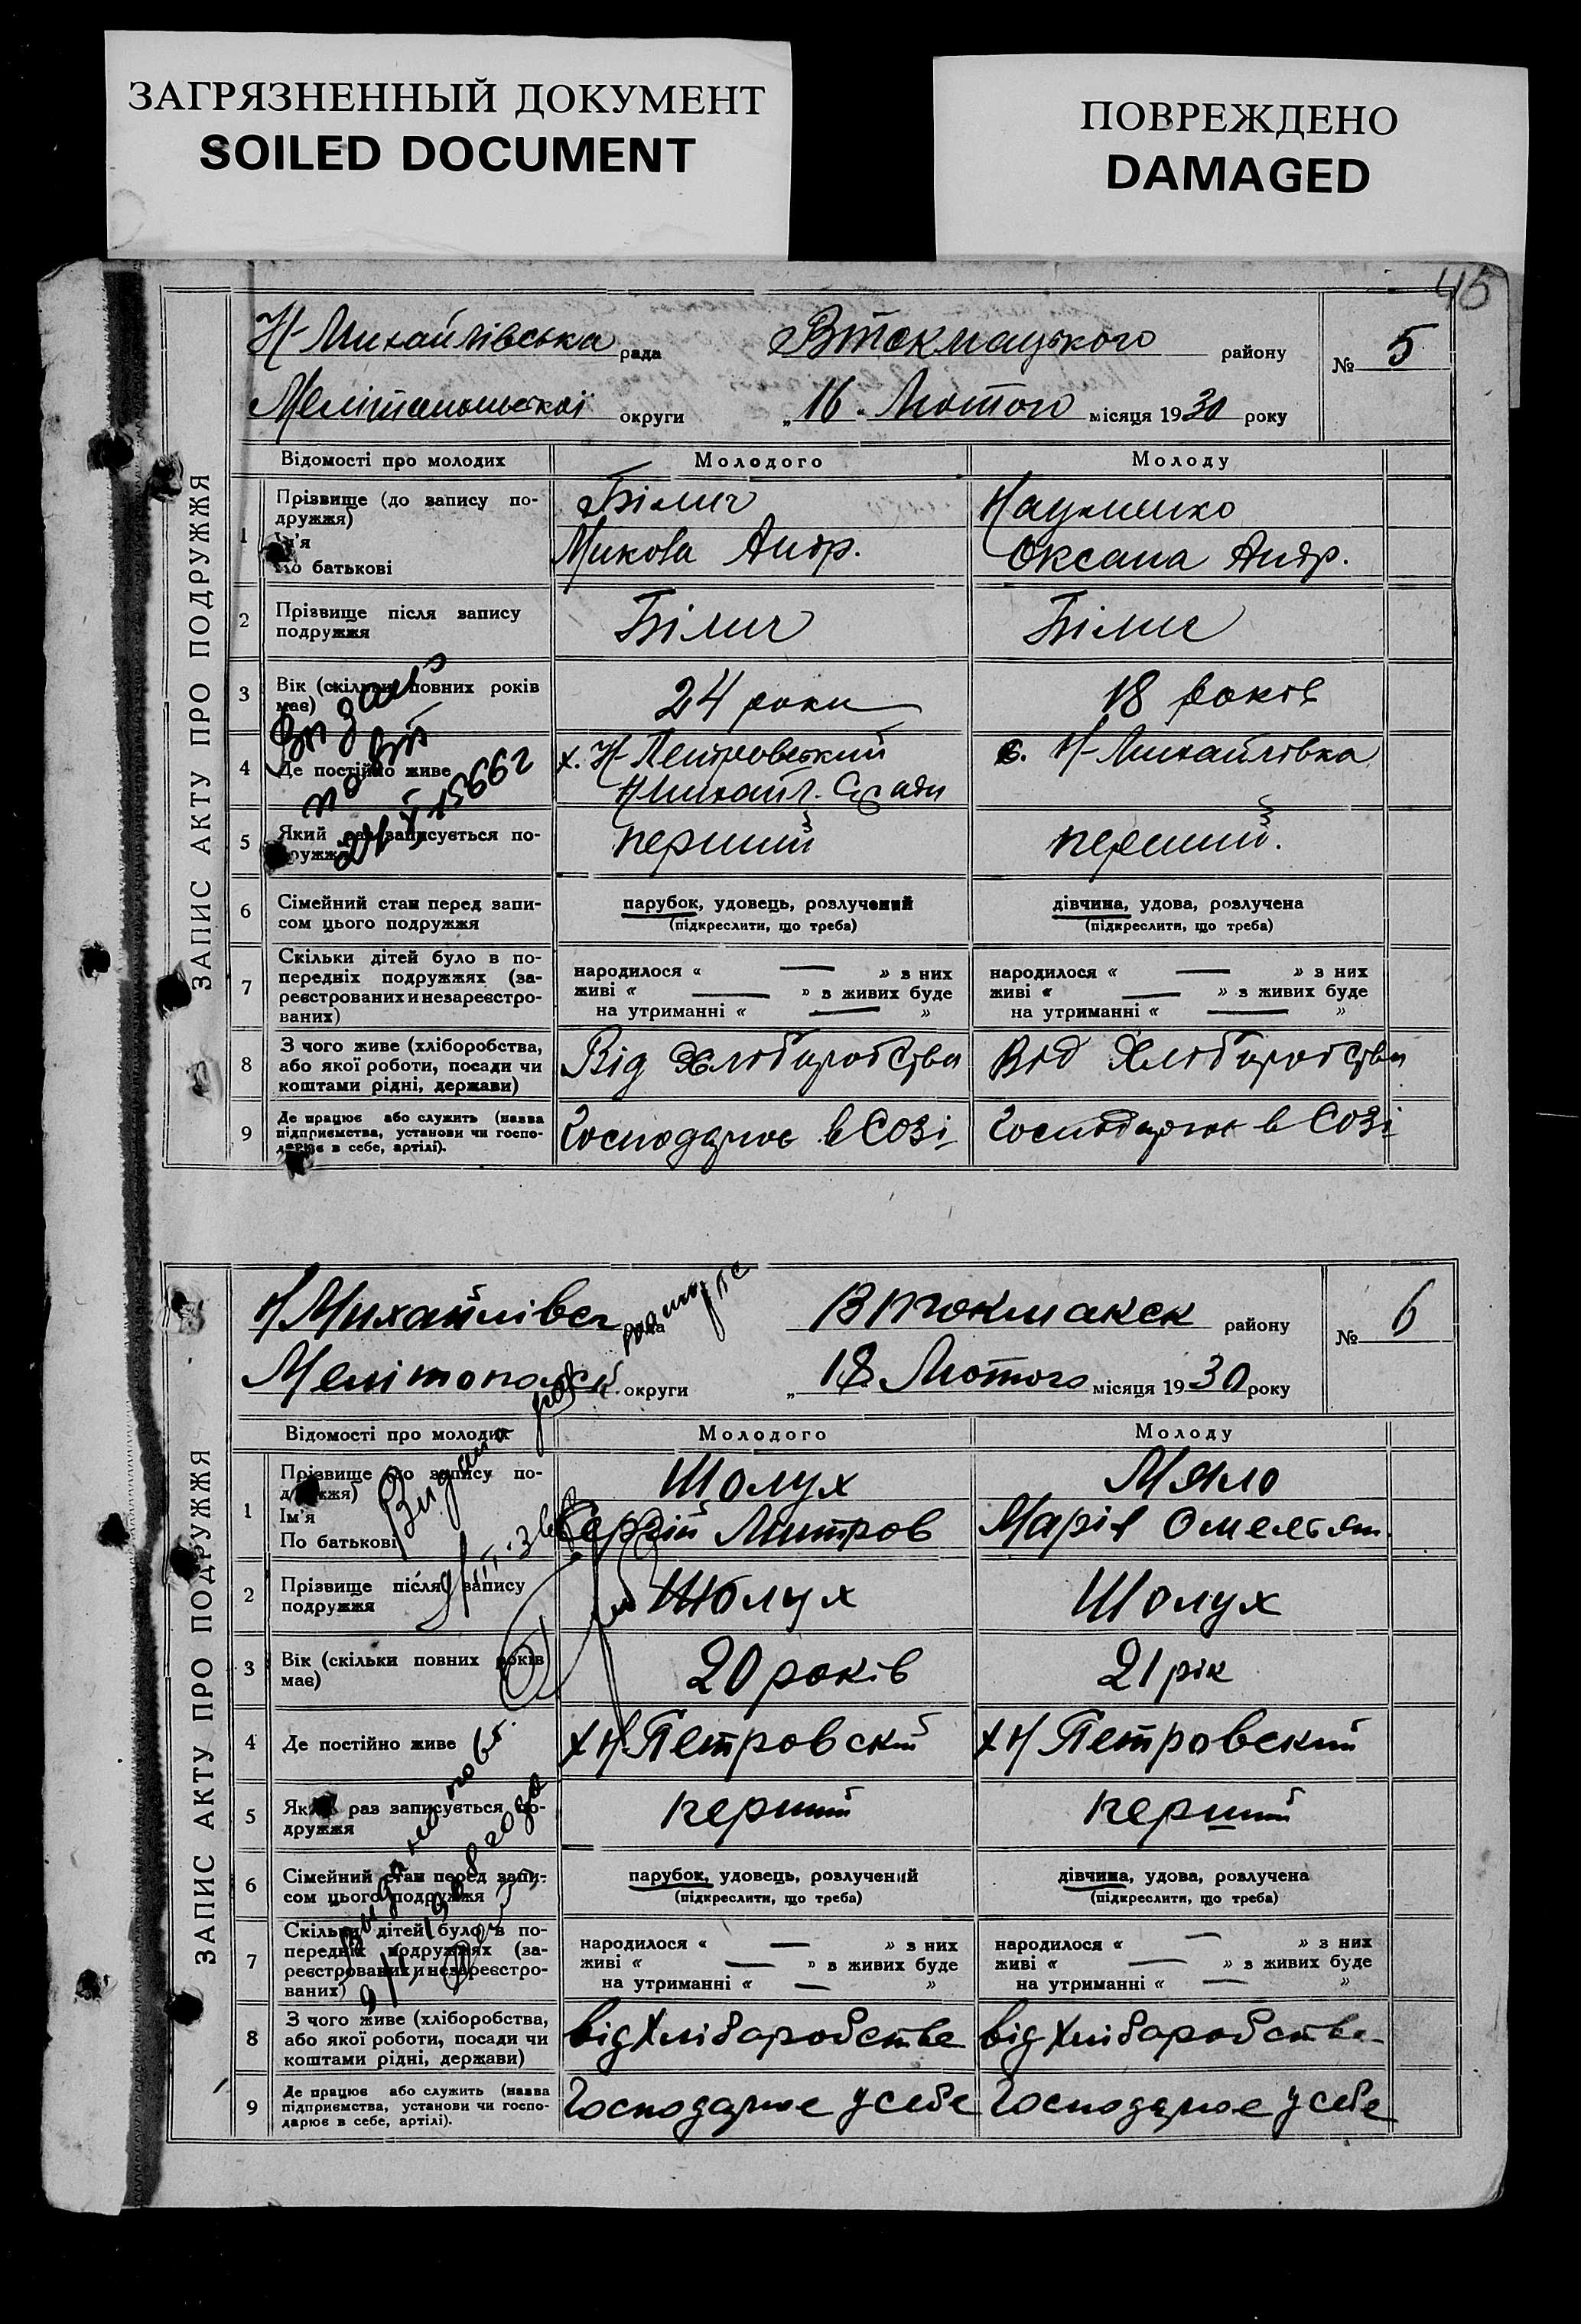 ЗАГРЯЗНЕННЫЙ ДОКУМЕНТ
SOILED DOCUMENT
ПОВРЕЖДЕНО
DAMAGED
45
ЗАПИС АКТУ ПРО ПОДРУЖЖЯ
Н-Михайлівська рада Втокмацького району № 5
Мелітопольської округи „16" Лютого місяця 1930 року
Відомості про молодих Молодого Молоду
1 Прізвище (до запису по- Білич Науменко
дружжя)
Ім'я Микола Андр. Оксана Андр.
По батькові
2 Прізвище після запису Білич Білич
подружжя
3 Вік (скільки повних років 24 роки 18 років
має)
4 Де постійно живе х. Н-Петровський с. Н-Михайлівка
5 Який раз записується по- перший перший.
дружжя
6 Сімейний стан перед запи- парубок, удовець, розлучений дівчина, удова, розлучена
сом цього подружжя (підкреслити, що треба) (підкреслити, що треба)
7 Скільки дітей було в по-
передніх подружжях (за- народилося « — » з них народилося « — » з них
реєстрованих и незареєстро- живі « — » з живих буде живі « — » з живих буде
ваних) на утриманні « — » на утриманні « — »
8 З чого живе (хліборобства, Від Хліборобства Від Хліборобства
або якої роботи, посади чи
коштами рідні, держави)
9 Де працює або служить (назва Господарює в Созі Господарює в Созі
підприємства, установи чи госпо-
дарює в себе, артілі).
ЗАПИС АКТУ ПРО ПОДРУЖЖЯ
Н Михайлівсь рада Втокмакск району № 6
Мелітопольск. округи „18 Лютого місяця 1930 року
Відомості про молодих Молодого Молоду
1 Прізвище до запису по- Шолух Мяло
дружжя)
Ім'я Сергій Митров Марія Омельян.
По батькові
2 Прізвище після запису Шолух Шолух
подружжя
3 Вік (скільки повних років 20 років 21 рік
має)
4 Де постійно живе х Н Петровский х Н Петровский
5 Який раз записується по- перший перший
дружжя
6 Сімейний стан перед запи- парубок, удовець, розлучений дівчина, удова, розлучена
сом цього подружжя (підкреслити, що треба) (підкреслити, що треба)
7 Скільки дітей було в по-
передніх подружжях (за- народилося « — » з них народилося « — » з них
реєстрованих и незареєстро- живі « — » з живих буде живі « — » з живих буде
ваних) на утриманні « — » на утриманні « — »
8 З чого живе (хліборобства, від Хліборобства від Хліборобства
або якої роботи, посади чи
коштами рідні, держави)
9 Де працює або служить (назва Господарює у себе Господарює у себе
підприємства, установи чи госпо-
дарює в себе, артілі).